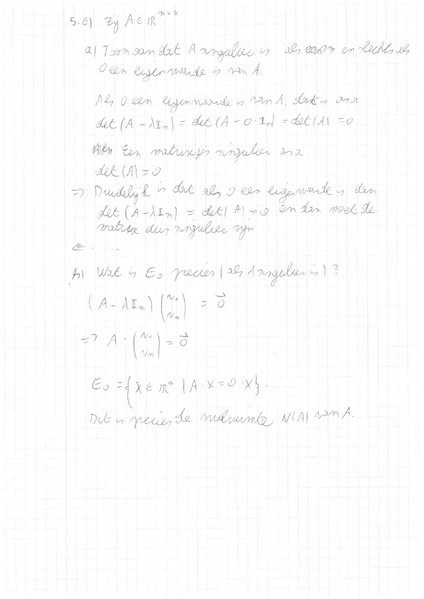 5.6) Zij A ∈ ℝⁿˣⁿ
a) Toon aan dat A singulier is als en slechts als
0 een eigenwaarde is van A.
Als 0 een eigenwaarde is van A, dat is asa
det(A - λIₙ) = det(A - 0·Iₙ) = det(A) = 0
Een matrix is singulier asa
det(A) = 0
⇒: Duidelijk is dat als 0 een eigenwaarde is dan
det(A - λIₙ) = det(A) = 0 en dan moet de
matrix dus singulier zijn
⇐: ....
b) Wat is E₀ precies (als A singulier is)?
(A - λIₙ) (v₁ vₙ) = 0⃗
⇒ A · (v₁ vₙ) = 0⃗
E₀ = {X ∈ ℝⁿ | A·X = 0·X}.
Dit is precies de nulruimte N(A) van A.